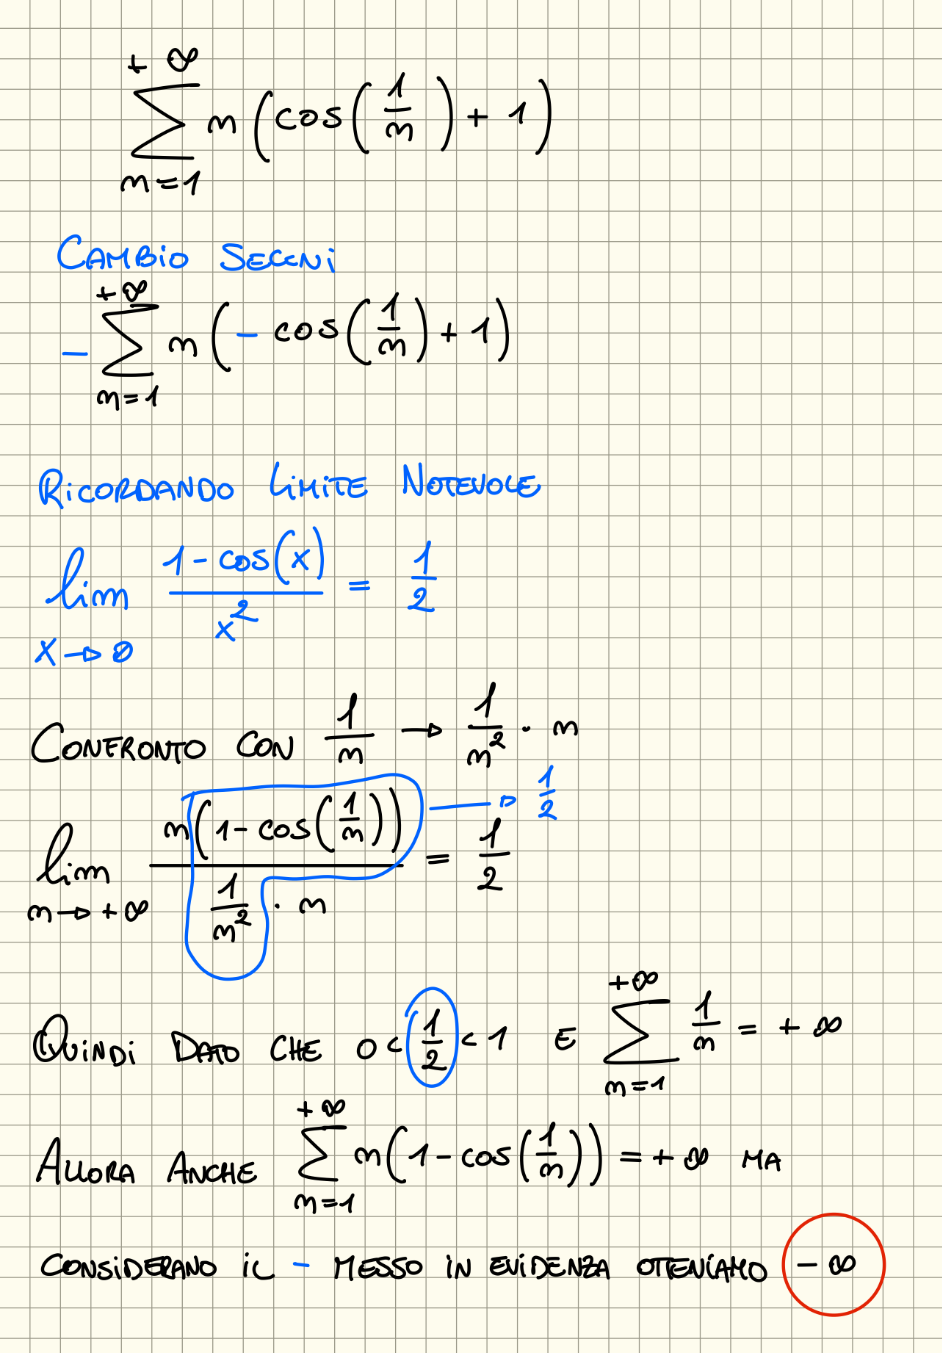 +∞
∑ n (cos(1/n) + 1)
n=1
CAMBIO SEGNI
+∞
- ∑ n (- cos(1/n) + 1)
n=1
RICORDANDO LIMITE NOTEVOLE
lim (1 - cos(x))/x² = 1/2
x → 0
CONFRONTO CON 1/n → 1/n² · n
lim n(1 - cos(1/n)) / (1/n² · n) = 1/2 → 1/2
n → +∞
QUINDI DATO CHE 0 < 1/2 < 1 E ∑ 1/n = +∞
+∞
n=1
ALLORA ANCHE ∑ n(1 - cos(1/n)) = +∞ MA
+∞
n=1
CONSIDERANO IL - MESSO IN EVIDENZA OTTENIAMO -∞